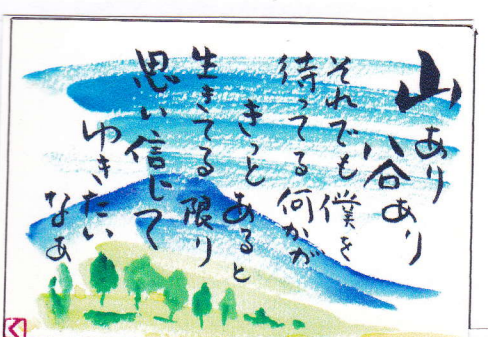 山あり
谷あり
それでも僕を
待ってる何かが
きっとあると
生きてる限り
思い信じて
ゆきたい
なあ
く